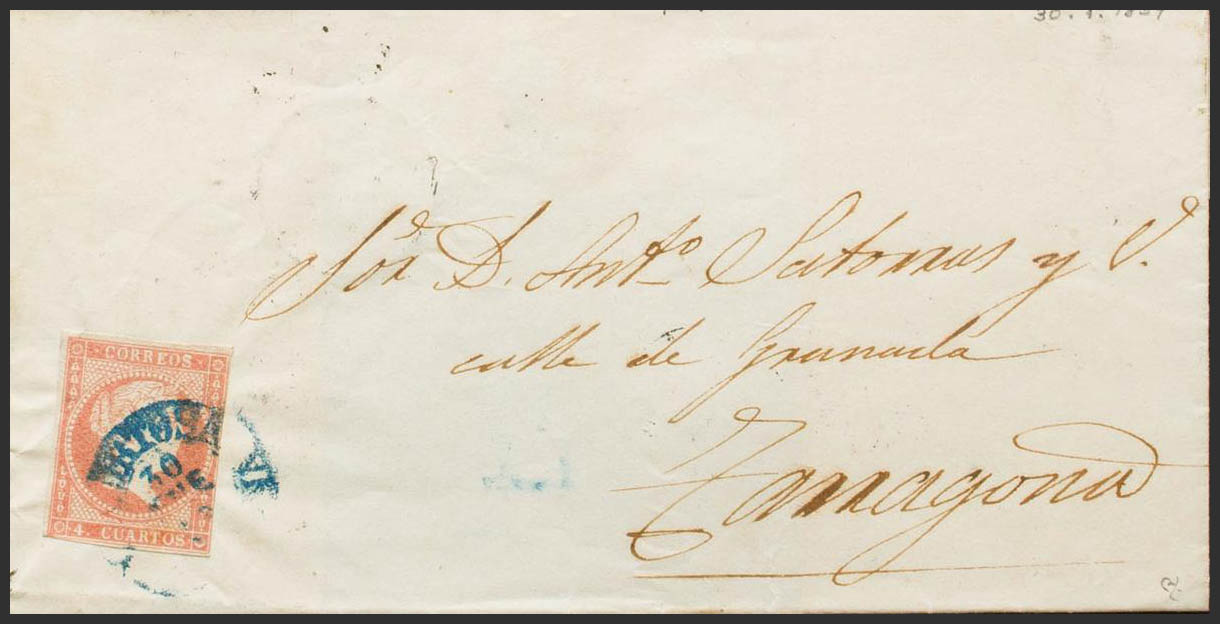 30.1.1857
Sor. D. Anto. Satorras y V.
calle de Granada
Tarragona
CORREOS
TORTOSA
30
ENE
4. CUARTOS